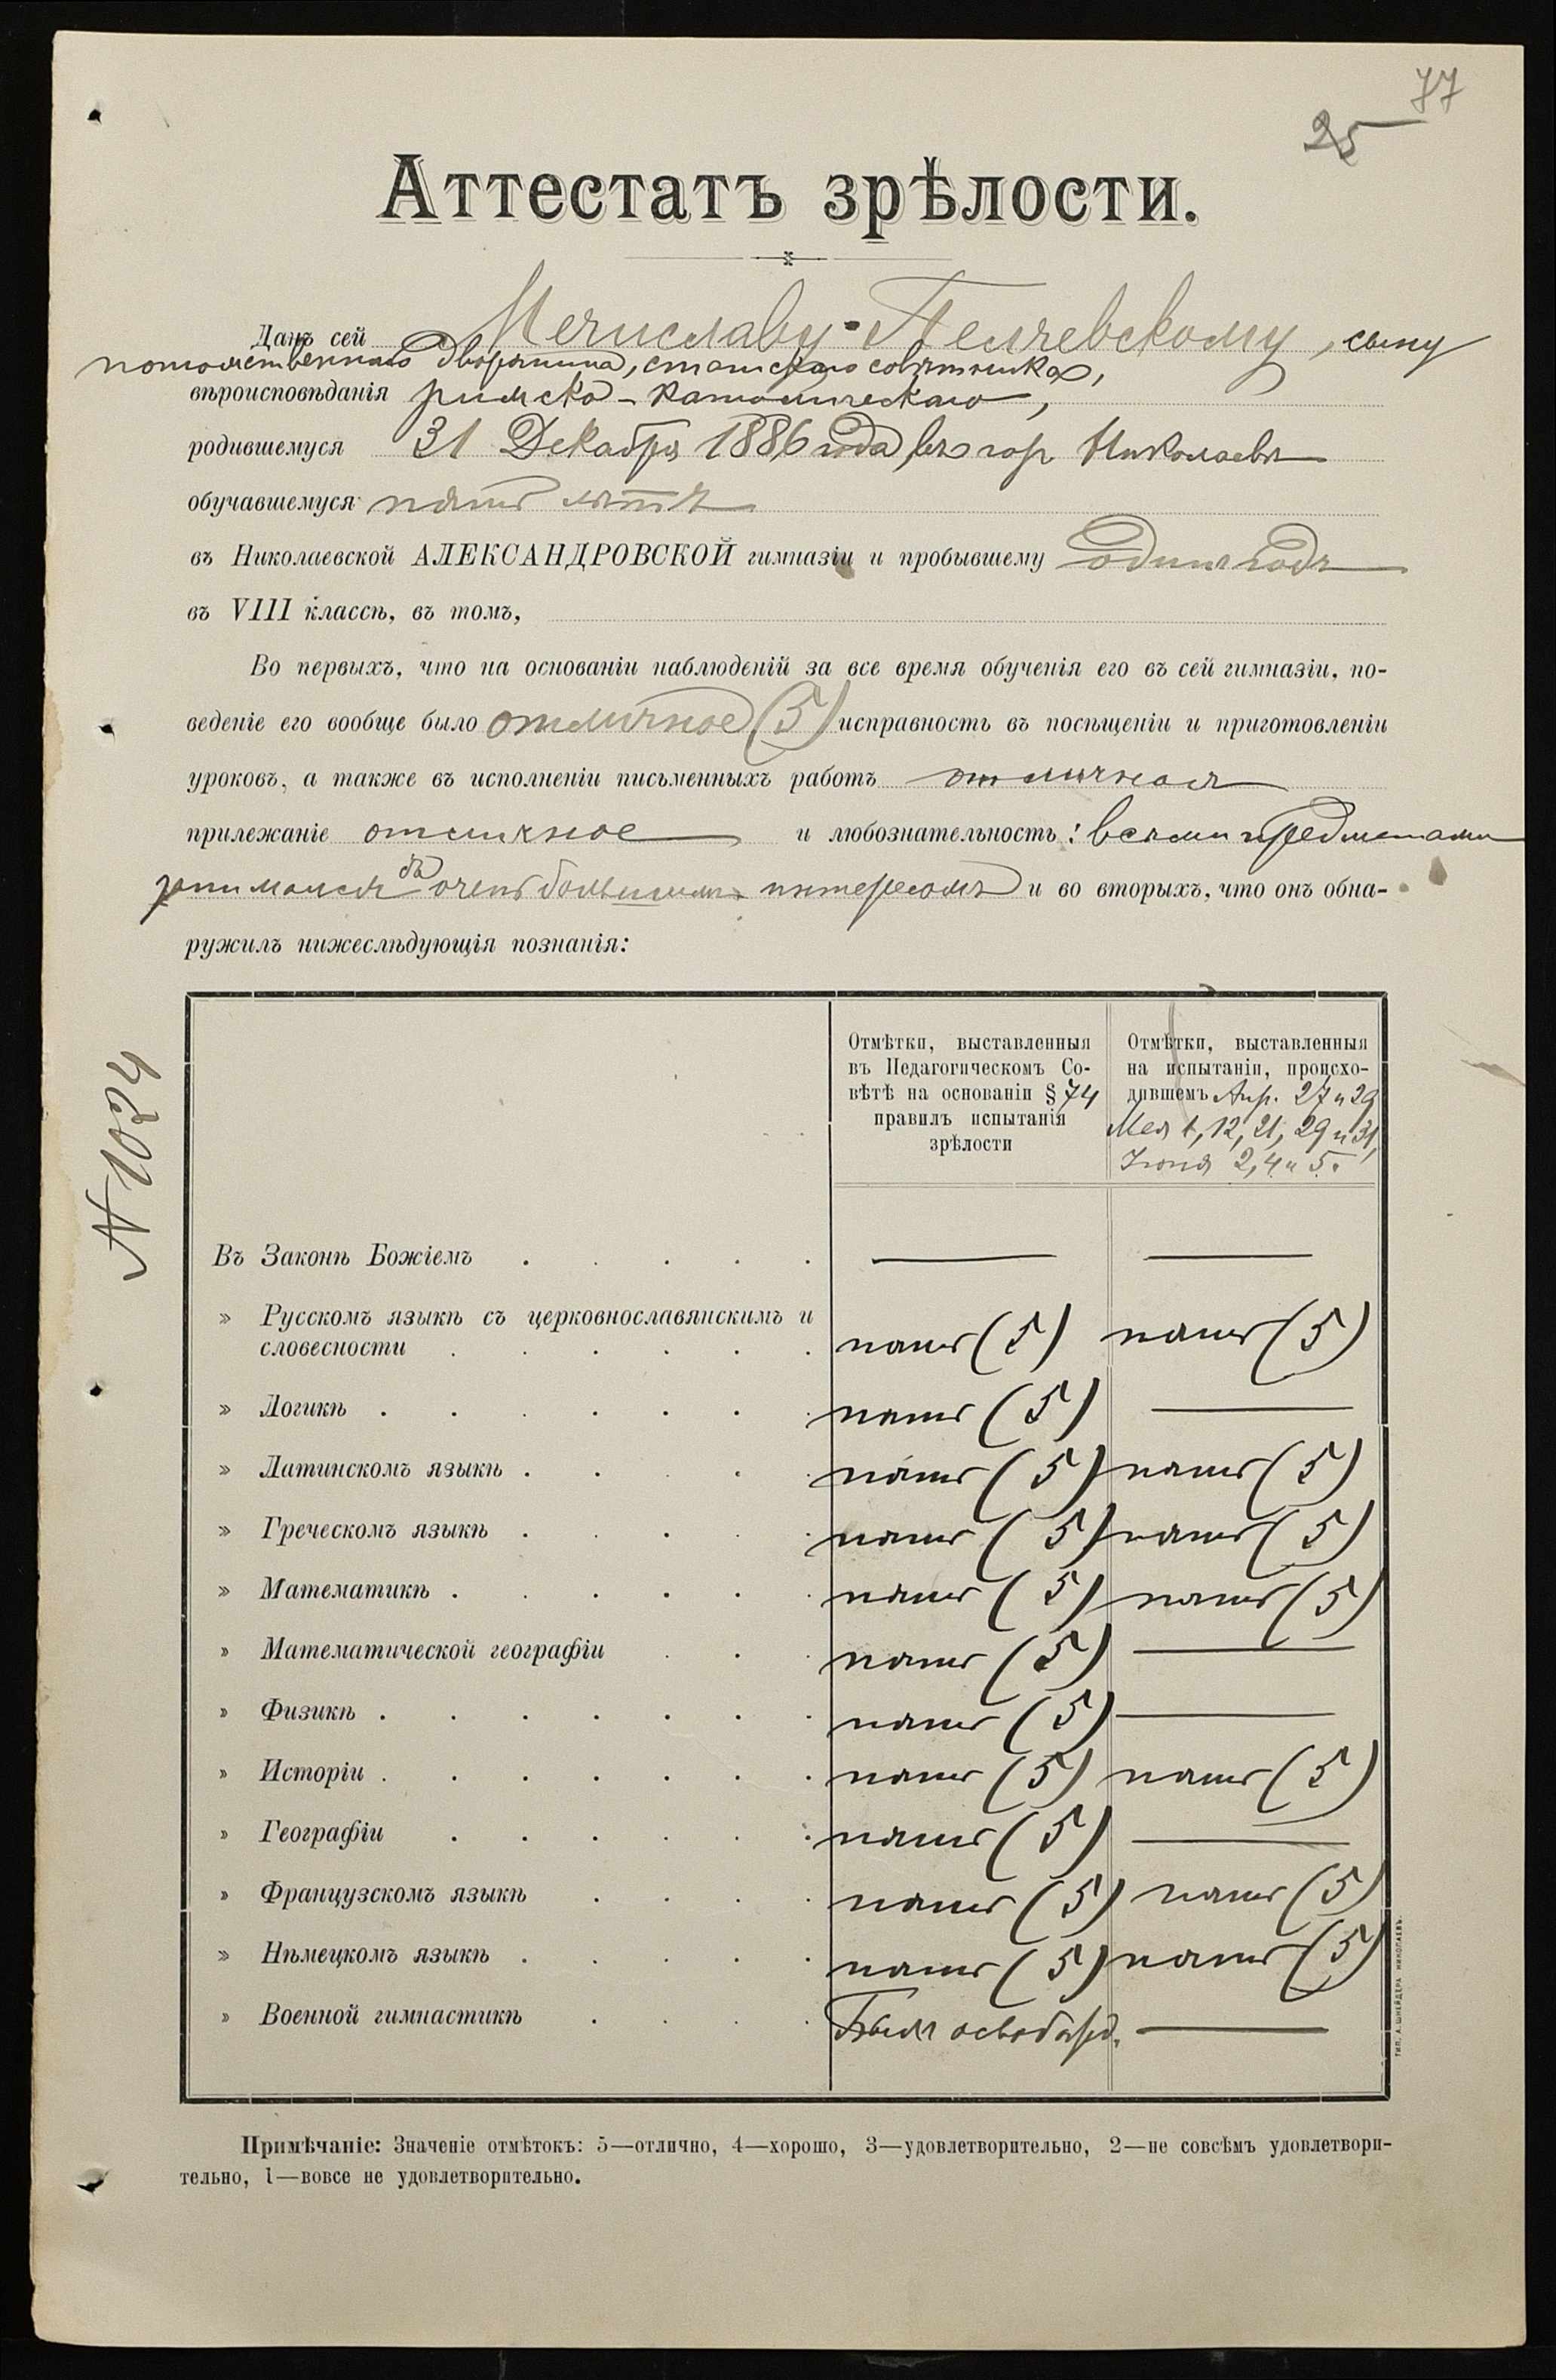 77
25
Аттестатъ зрѣлости.
Данъ сей Мечиславу Пелчевскому, сыну
потомственнаго дворянина, статскаго совѣтника,
вѣроисповѣданія римско-католическаго,
родившемуся 31 Декабря 1886 года въ гор. Николаевѣ
обучавшемуся пять лѣтъ
въ Николаевской АЛЕКСАНДРОВСКОЙ гимназіи и пробывшему одинъ годъ
въ VIII классѣ, въ томъ,
Во первыхъ, что на основаніи наблюденій за все время обученія его въ сей гимназіи, по-
веденіе его вообще было отличное (5) исправность въ посѣщеніи и приготовленіи
уроковъ, а также въ исполненіи письменныхъ работъ отличная
прилежаніе отличное и любознательность: всѣми предметами
занимался съ очень большимъ интересомъ и во вторыхъ, что онъ обна-
ружилъ нижеслѣдующія познанія:
N 1024
Отмѣтки, выставленныя
въ Педагогическомъ Со-
вѣтѣ на основаніи § 74
правилъ испытанія
зрѣлости
Отмѣтки, выставленныя
на испытаніи, происхо-
дившемъ Апр. 27 и 29
Мая 1, 12, 21, 29 и 31,
Іюня 2, 4 и 5.
Въ Законѣ Божіемъ . . . . .
» Русскомъ языкѣ съ церковнославянскимъ и
словесности . . . . . . пять (5) пять (5)
» Логикѣ . . . . . . . пять (5)
» Латинскомъ языкѣ . . . . . пять (5) пять (5)
» Греческомъ языкѣ . . . . . пять (5) пять (5)
» Математикѣ . . . . . . пять (5) пять (5)
» Математической географіи . . . пять (5)
» Физикѣ . . . . . . . пять (5)
» Исторіи . . . . . . . пять (5) пять (5)
» Географіи . . . . . . пять (5)
» Французскомъ языкѣ . . . . пять (5) пять (5)
» Нѣмецкомъ языкѣ . . . . . пять (5) пять (5)
» Военной гимнастикѣ . . . . Былъ освобожд.
ТИП. А. ШНЕЙДЕРА НИКОЛАЕВЪ.
Примѣчаніе: Значеніе отмѣтокъ: 5—отлично, 4—хорошо, 3—удовлетворительно, 2—не совсѣмъ удовлетвори-
тельно, 1—вовсе не удовлетворительно.